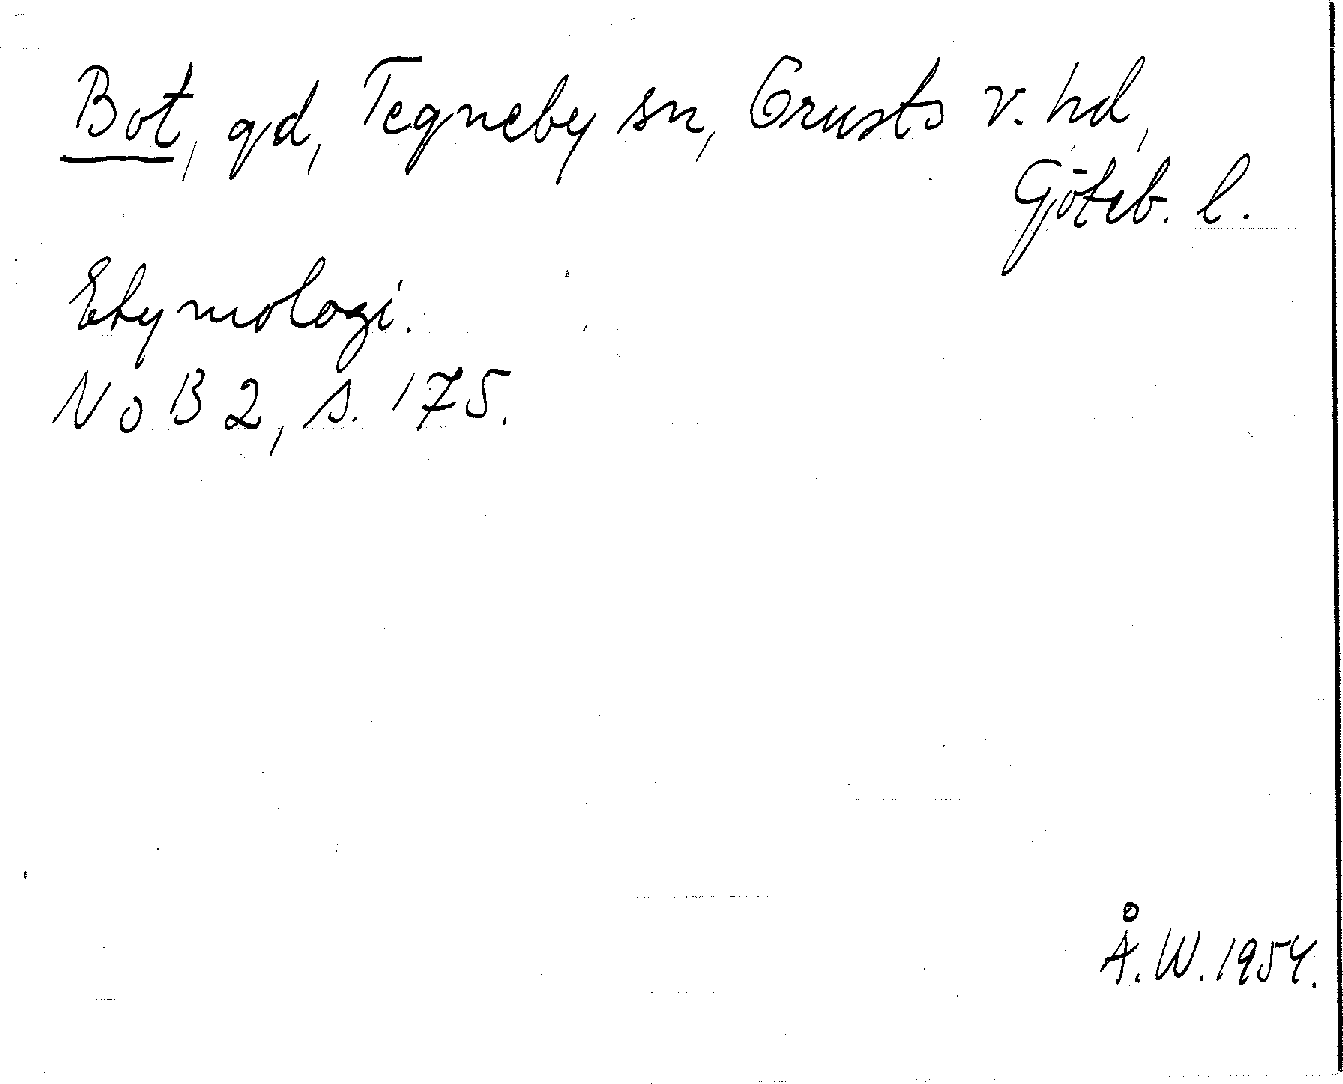 Bot, gd, Tegneby sn, Orusts v. hd,
Göteb. l.
Etymologi.
NoB 2, s. 175.
Å.W. 1954.